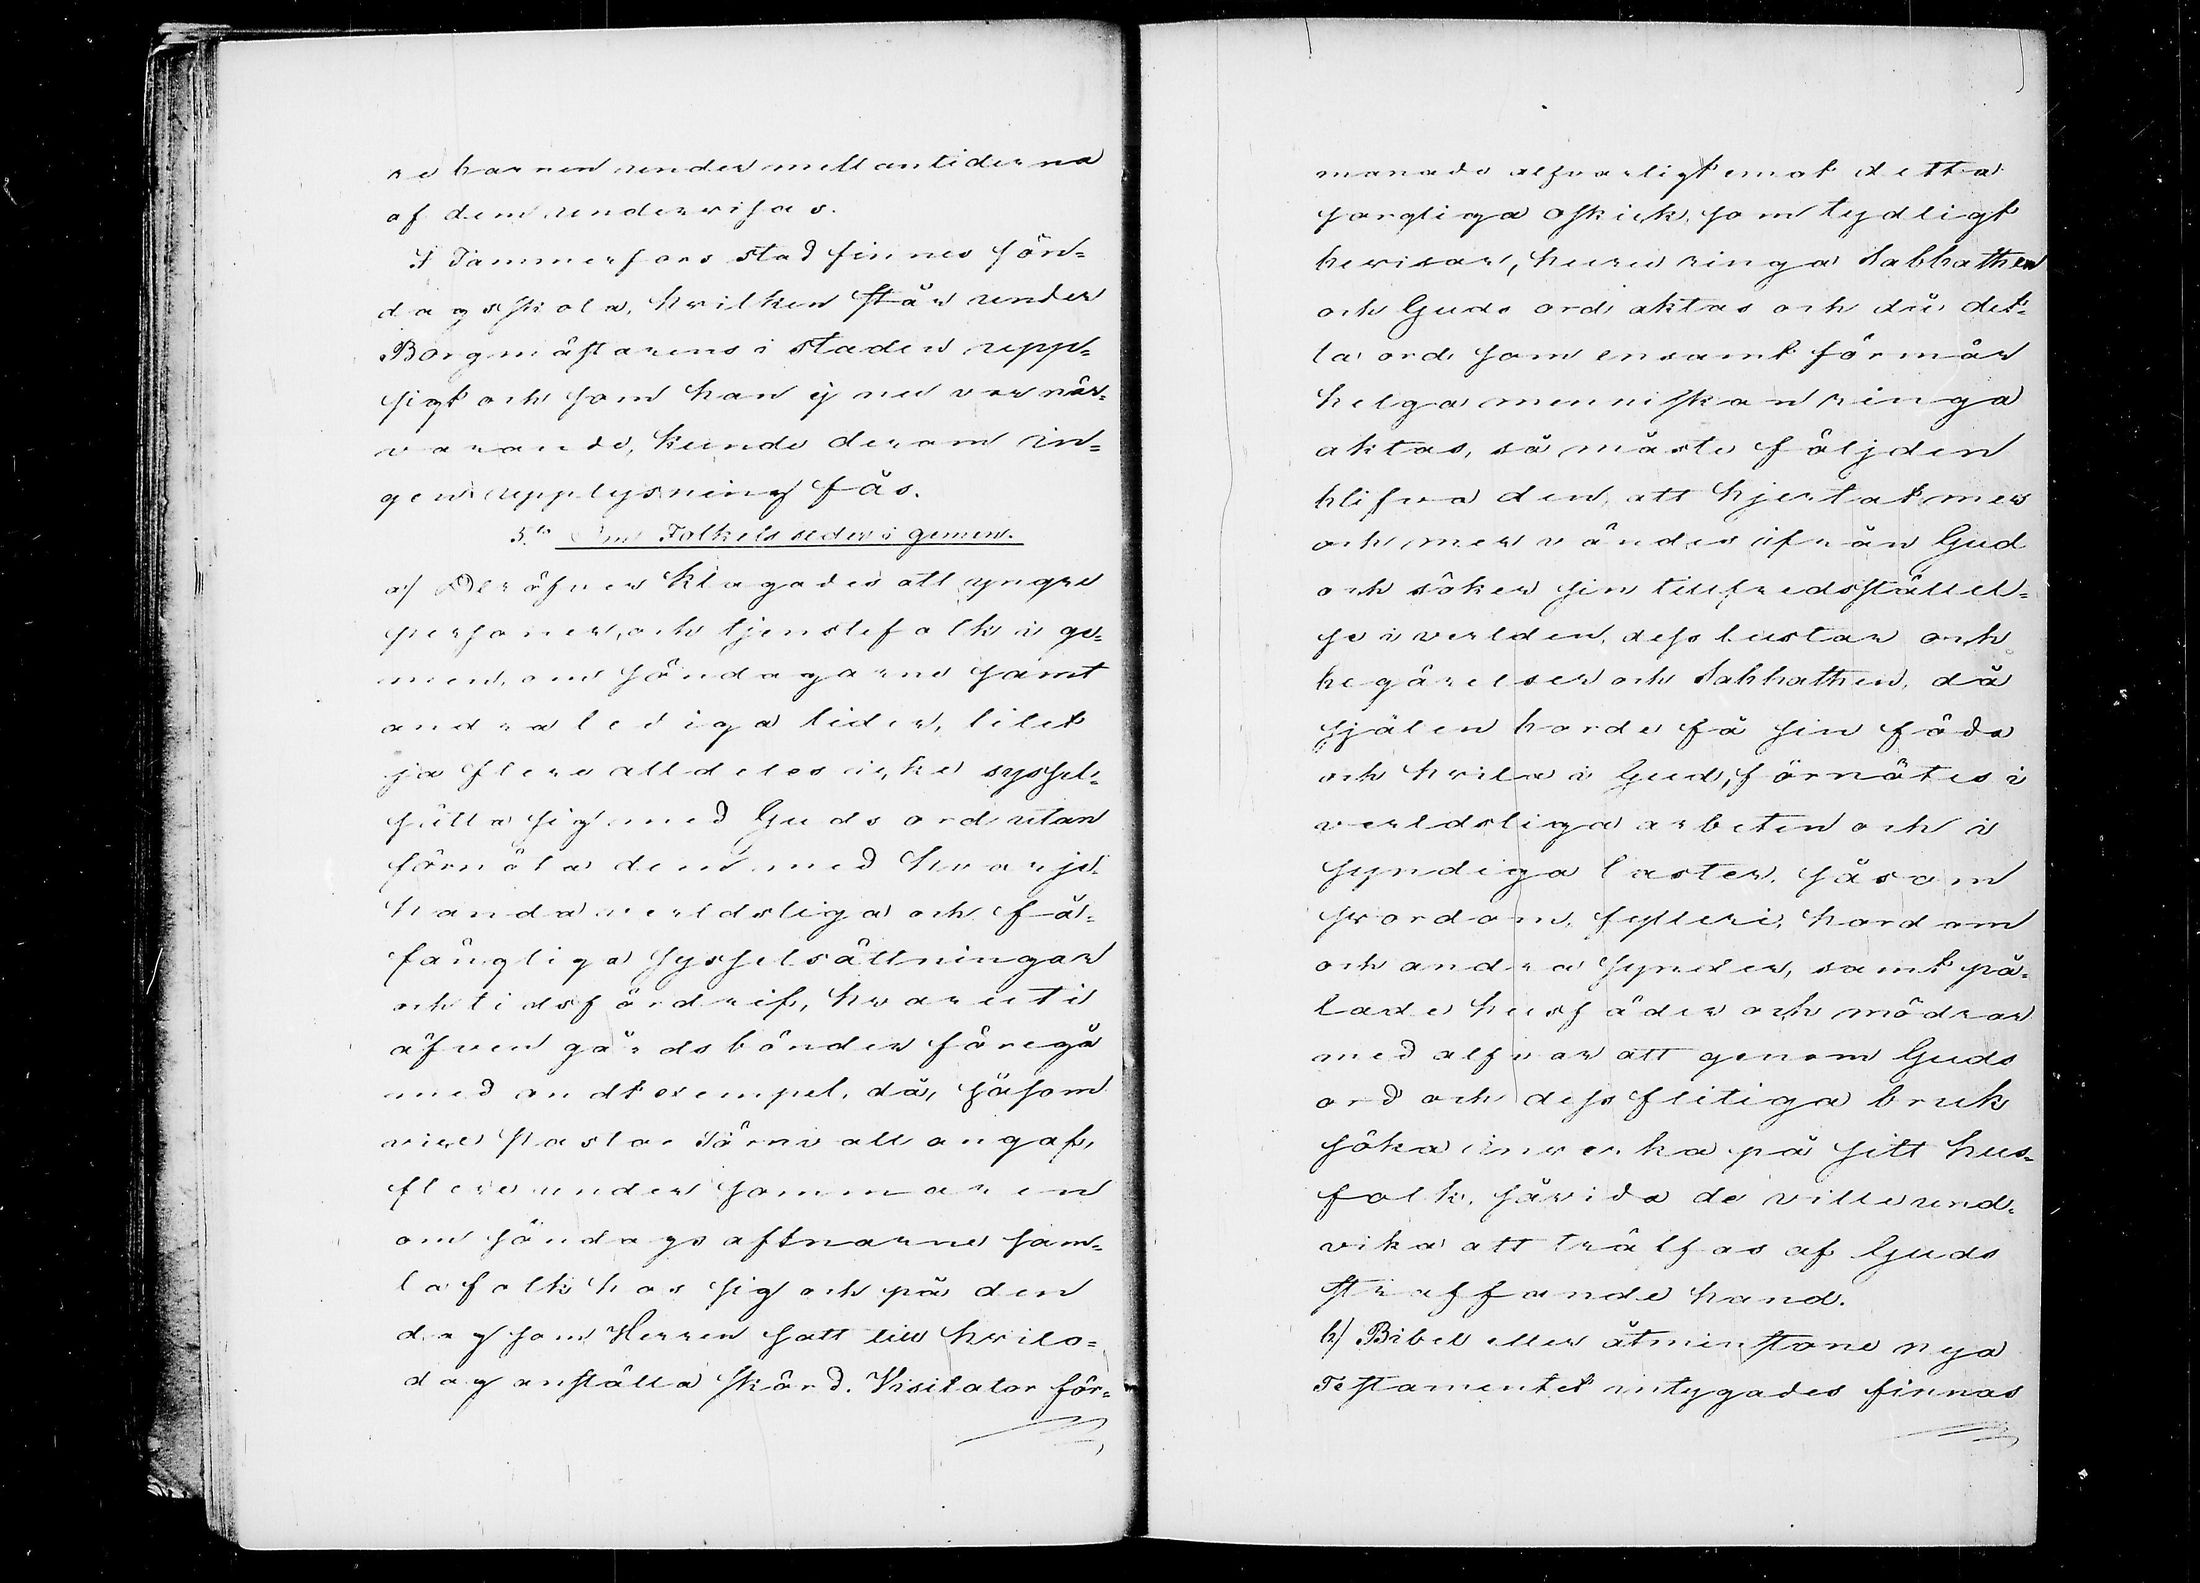 re barnen under mellantiderna
af dem undervisas.
I Tammerfors stad finnes sön-
dagsskola, hvilken står under
Borgmästarens i staden upp-
sigt och som han ej nu var när-
varande, kunde derom in-
gen upplysning fås.
5.to Om Folkets seder i gemen.
a) Deröfver klagades att yngre
personer, och tjenstefolk i ge-
men, om söndagarne samt
andra lediga tider, litet
ja flere alldeles icke syssel-
sätta sig med Guds ord utan
förnöta dem med hvarje-
handa verldsliga och få-
fängliga sysselsättningar
och tidsfördrif, hvaruti
äfven gårdsbönder föregå
med ondt exempel, då, såsom
vice Pastor Törnvall angaf,
flere under sommaren
om söndagsaftnarne sam-
la folk hos sig och på den
dag som Herren satt till hvilo-
dag anställa skörd. Visitator för-
manade alfvarligt emot detta
sorgliga oskick, som tydligt
bevisar, huru ringa Sabbathen
och Guds ord aktas och då det-
ta ord som ensamt förmår
helga menniskan ringa
aktas, så måste följden
blifva den, att hjertat mer
och mer vändes ifrån Gud
och söker sin tillfredsställel-
se i verlden, dess lustar och
begärelser och Sabbathen, då
själen borde få sin föda
och hvila i Gud, förnötes i
verldsliga arbeten och i
syndiga laster, såsom
svordom, fylleri, hordom
och andra synder, samt på-
lade husfäder och mödrar
med alfvar att genom Guds
ord och dess flitiga bruk
söka inverka på sitt hus-
folk, såvida de ville und-
vika att träffas af Guds
straffande hand.
b) Bibel eller åtminstone nya
Testamentet intygades finnas